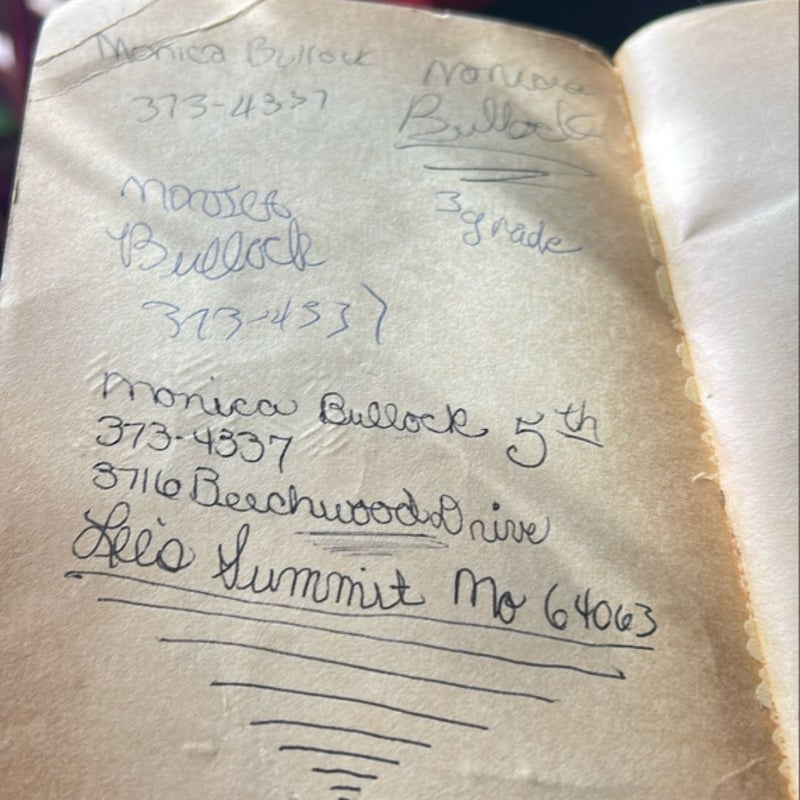 Monica Bullock
373-4337
Monica
Bullock
3 grade
Bullock
373-4337
Monica Bullock 5th
373-4337
3716 Beechwood Drive
Lee's Summit Mo 64063